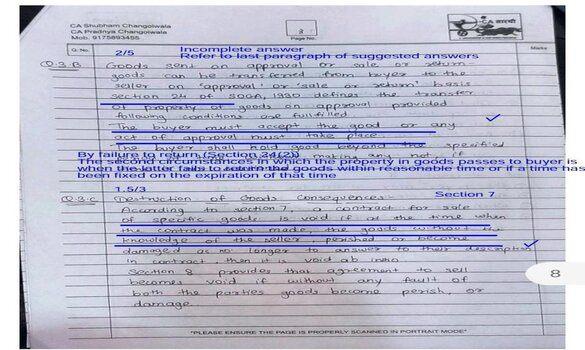 CA Shubham Changolwala
CA Pradnya Changolwala
Mob. 9175893455
3
Page No.
CA सारथी
Q. No.
Marks
2/5
Incomplete answer
Refer to last paragraph of suggested answers
Q.3.B
Goods sent on approval or sale or return-
goods can be transferred from buyer to the
seller on "approval" or "sale or return" basis
section 24 of SOGA, 1930 defines the transfer
of property of goods on approval provided
following conditions are fullfilled
The buyer must accept the good or any
act of approval must take place.
The buyer shall hold good beyond the specified
By failure to return (Section 24(2))
making any not if
The second circumstances in which the property in goods passes to buyer is
when the latter fails to return the goods within reasonable time or if a time has
been fixed on the expiration of that time
1.5/3
Section 7
Q.3.C
Destruction of Goods Consequences-
According to section 7, a contract for sale
of specific goods is void if at the time when
the contract was made, the goods without the
knowledge of the seller perished or become
damaged as no longer to answer to their description
in contract, then it is void ab intio
Section 8 provides that agreement to sell
becomes void if without any fault of
both the parties goods become perish, or
damage.
8
"PLEASE ENSURE THE PAGE IS PROPERLY SCANNED IN PORTRAIT MODE"